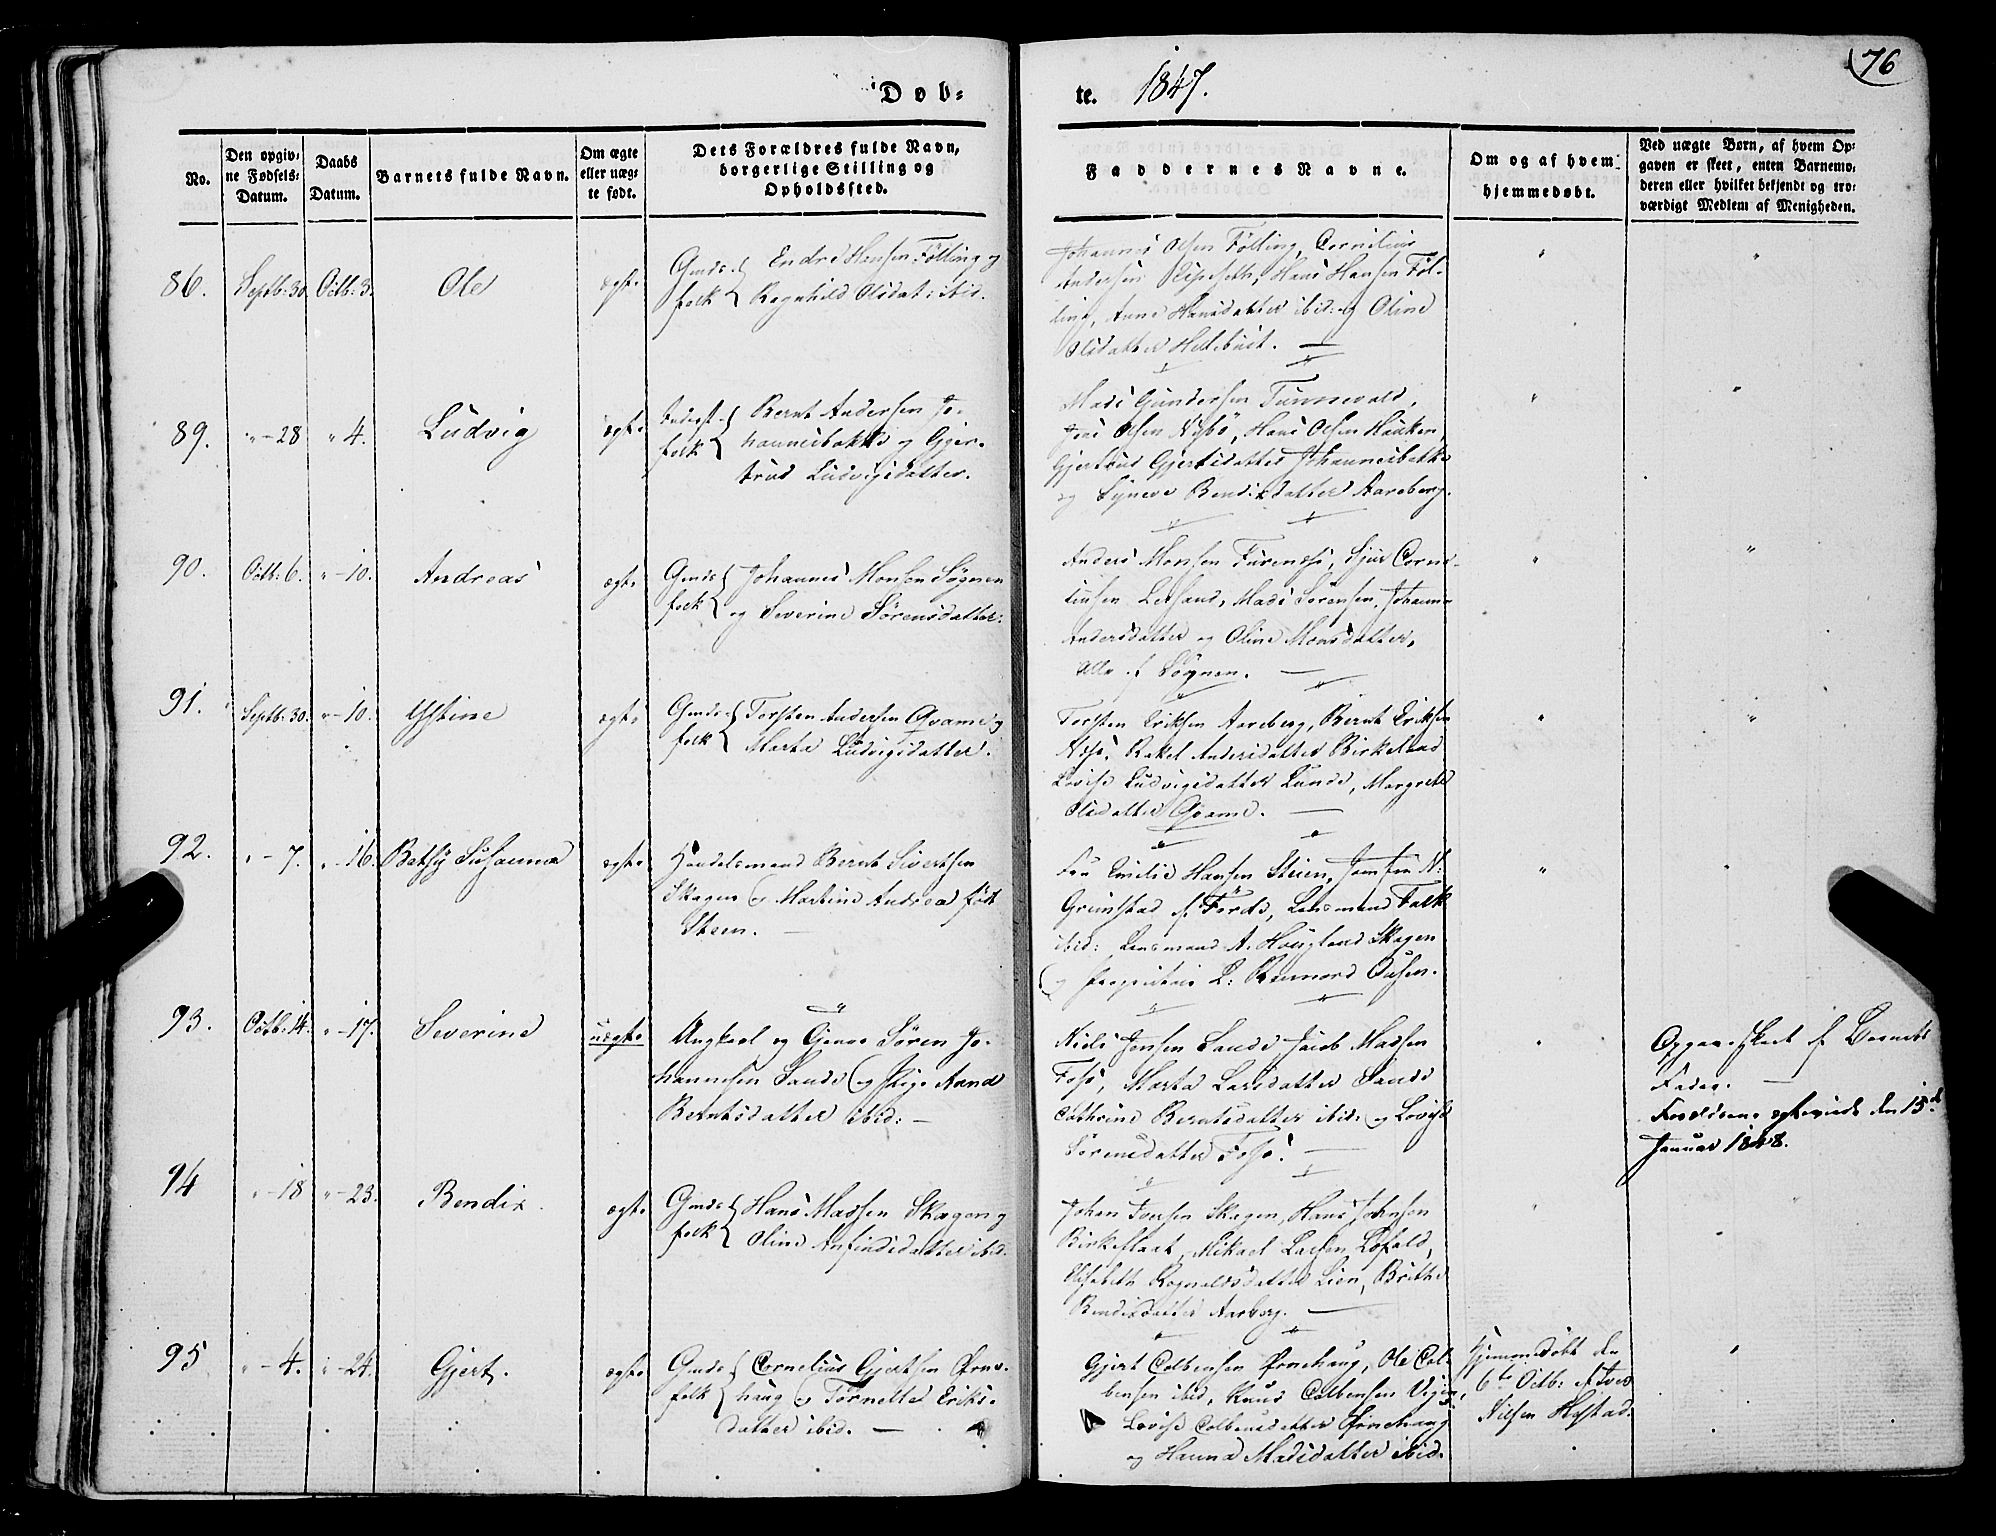 76
Døb-
te. 1847.
No.
Den opgiv-
ne Fødsels-
Datum.
Daabs
Datum.
Barnets fulde Navn.
Om ægte
eller uæg-
te født.
Dets Forældres fulde Navn,
borgerlige Stilling og
Opholdssted.
Faddernes Navne.
Om og af hvem
hjemmedøbt.
Ved uægte Børn, af hvem Op-
gaven er skeet, enten Barnemo-
deren eller hvilket bekjendt og tro-
værdigt Medlem af Menigheden.
86. Septb: 30 Octb: 3. Ole ægte
Gmds-
folk
Endre Hansen Fölling og
Ragnhild Olsdat: ibid.
Johannes Olsen Fölling, Cornelius
Andersen Hans Hansen Föl-
ling, Anne Hansdatter ibid: og Oline
Olsdatter Hellebust. —
" "
89. " - 28 " 4. Ludvig ægte
Inderst-
folk
Bernt Andersen Jo-
hannesbakke og Gjer-
trud Ludvigsdatter.
Mads Gundersen Tunnevald,
Jens Olsen Nybö, Hans Olsen Hauken,
Gjertrud Gjertsdatter Johannesbakke
og Syneve Bendixdatter Aareberg.
" "
90. Octb: 6. " - 10. Andreas ægte
Gmds-
folk
Johannes Monsen Sögnen
og Severine Sörensdatter.
Anders Monsen Furensö, Sjur Corne-
liusen Mads Sörensen, Johanne
Andersdatter og Oline Monsdatter,
Alle af Sögnen. —
" "
91. Septb: 30. " - 10. Ystine ægte
Gmds-
folk
Torsten Andersen Qvame og
Marta Ludvigsdatter.
Torsten Eriksen Aareberg, Bernt Eriksen
Rakel Andersdatter Birkeland
Lovise Ludvigsdatter Lunde, Margrete
Olsdatter Qvame. —
" "
92. " - 7. " - 16. Betsy Susanna ægte
Handelsmand Bernt Sivertsen
Skagen og Martine Andrea født
Steen. —
Fru Emilie Hansen Steien, Jomfru N:
Grimstad af Förde, Lensmand Falk
ibid: Lensmand A. Hougland Skagen
og Proprietair L:
" "
93. Octb: 14. " - 17. Severine uægte
Ungkarl og Gjenner Sören Jo-
hannesen Sande og Pige Anne
Berntsdatter ibid: —
Niels Jensen Sande Jacob Madsen
Fosse, Marta Larsdatter Sande
Cathrine Berntsdatter ibid: og Lovise
Sörensdatter Fosse. —
"
Opgave skeet af Barnets
Fader. —
Forældrene ægteviede den 15de
Januar 1848.
94 " - 18 " - 23. Bendix. ægte
Gmds-
folk
Hans Madsen Skagen og
Oline Anfindsdatter ibid.
Johan Iversen Skagen, Hans Johnsen
Birkeflaat, Mikael Larsen Löfald,
Elisabeth Ragnaldsdatter Lien, Brithe
Bendixdatter Aarberg. —
" "
95 " - 4. " - 24. Gjert. ægte
Gmds-
folk
Cornelius Gjertsen Örne-
haug og Tornette Eriks-
datter ibid. —
Gjert Colbensen Örnehaug, Ole Col-
bensen ibid, Knud Colbensen
Lovise Colbensdatter Örnehaug
og Hanna Madsdatter ibid.
Hjemmedøbt den
6te Octb: af Iver
Nilsen Hystad.
"